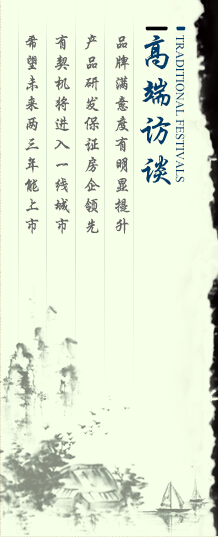 TRADITIONAL FESTIVALS
高端访谈
品牌满意度有明显提升
产品研发保证房企领先
有契机将进入一线城市
希望未来两三年能上市